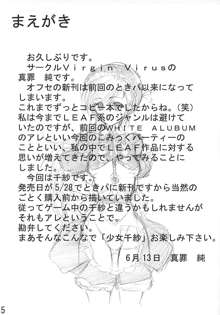 まえがき
お久しぶりです。
サークルＶｉｒｇｉｎ Ｖｉｒｕｓの
真罪　純です。
オフセの新刊は前回のときパ以来になって
しまいます。
これまでずっとコピー本でしたからね。（笑）
私は今までＬＥＡＦ系のジャンルは避けて
いたのですが、前回のWHITE ALUBUM
のアレといい今回のこみっくパーティーの
ことといい、私の中でＬＥＡＦ作品に対する
思いが増えてきたので、やってみることにし
ました。
今回は千紗です。
発売日が5/28でときパに新刊ですから当然の
ごとく購入前から描いていました。
従ってゲーム中の千紗と違うかもしれませんが
それもアレということで、
勘弁してください。
まあそんなこんなで「少女千紗」お楽しみ下さい。
６月１３日　真罪　純
5